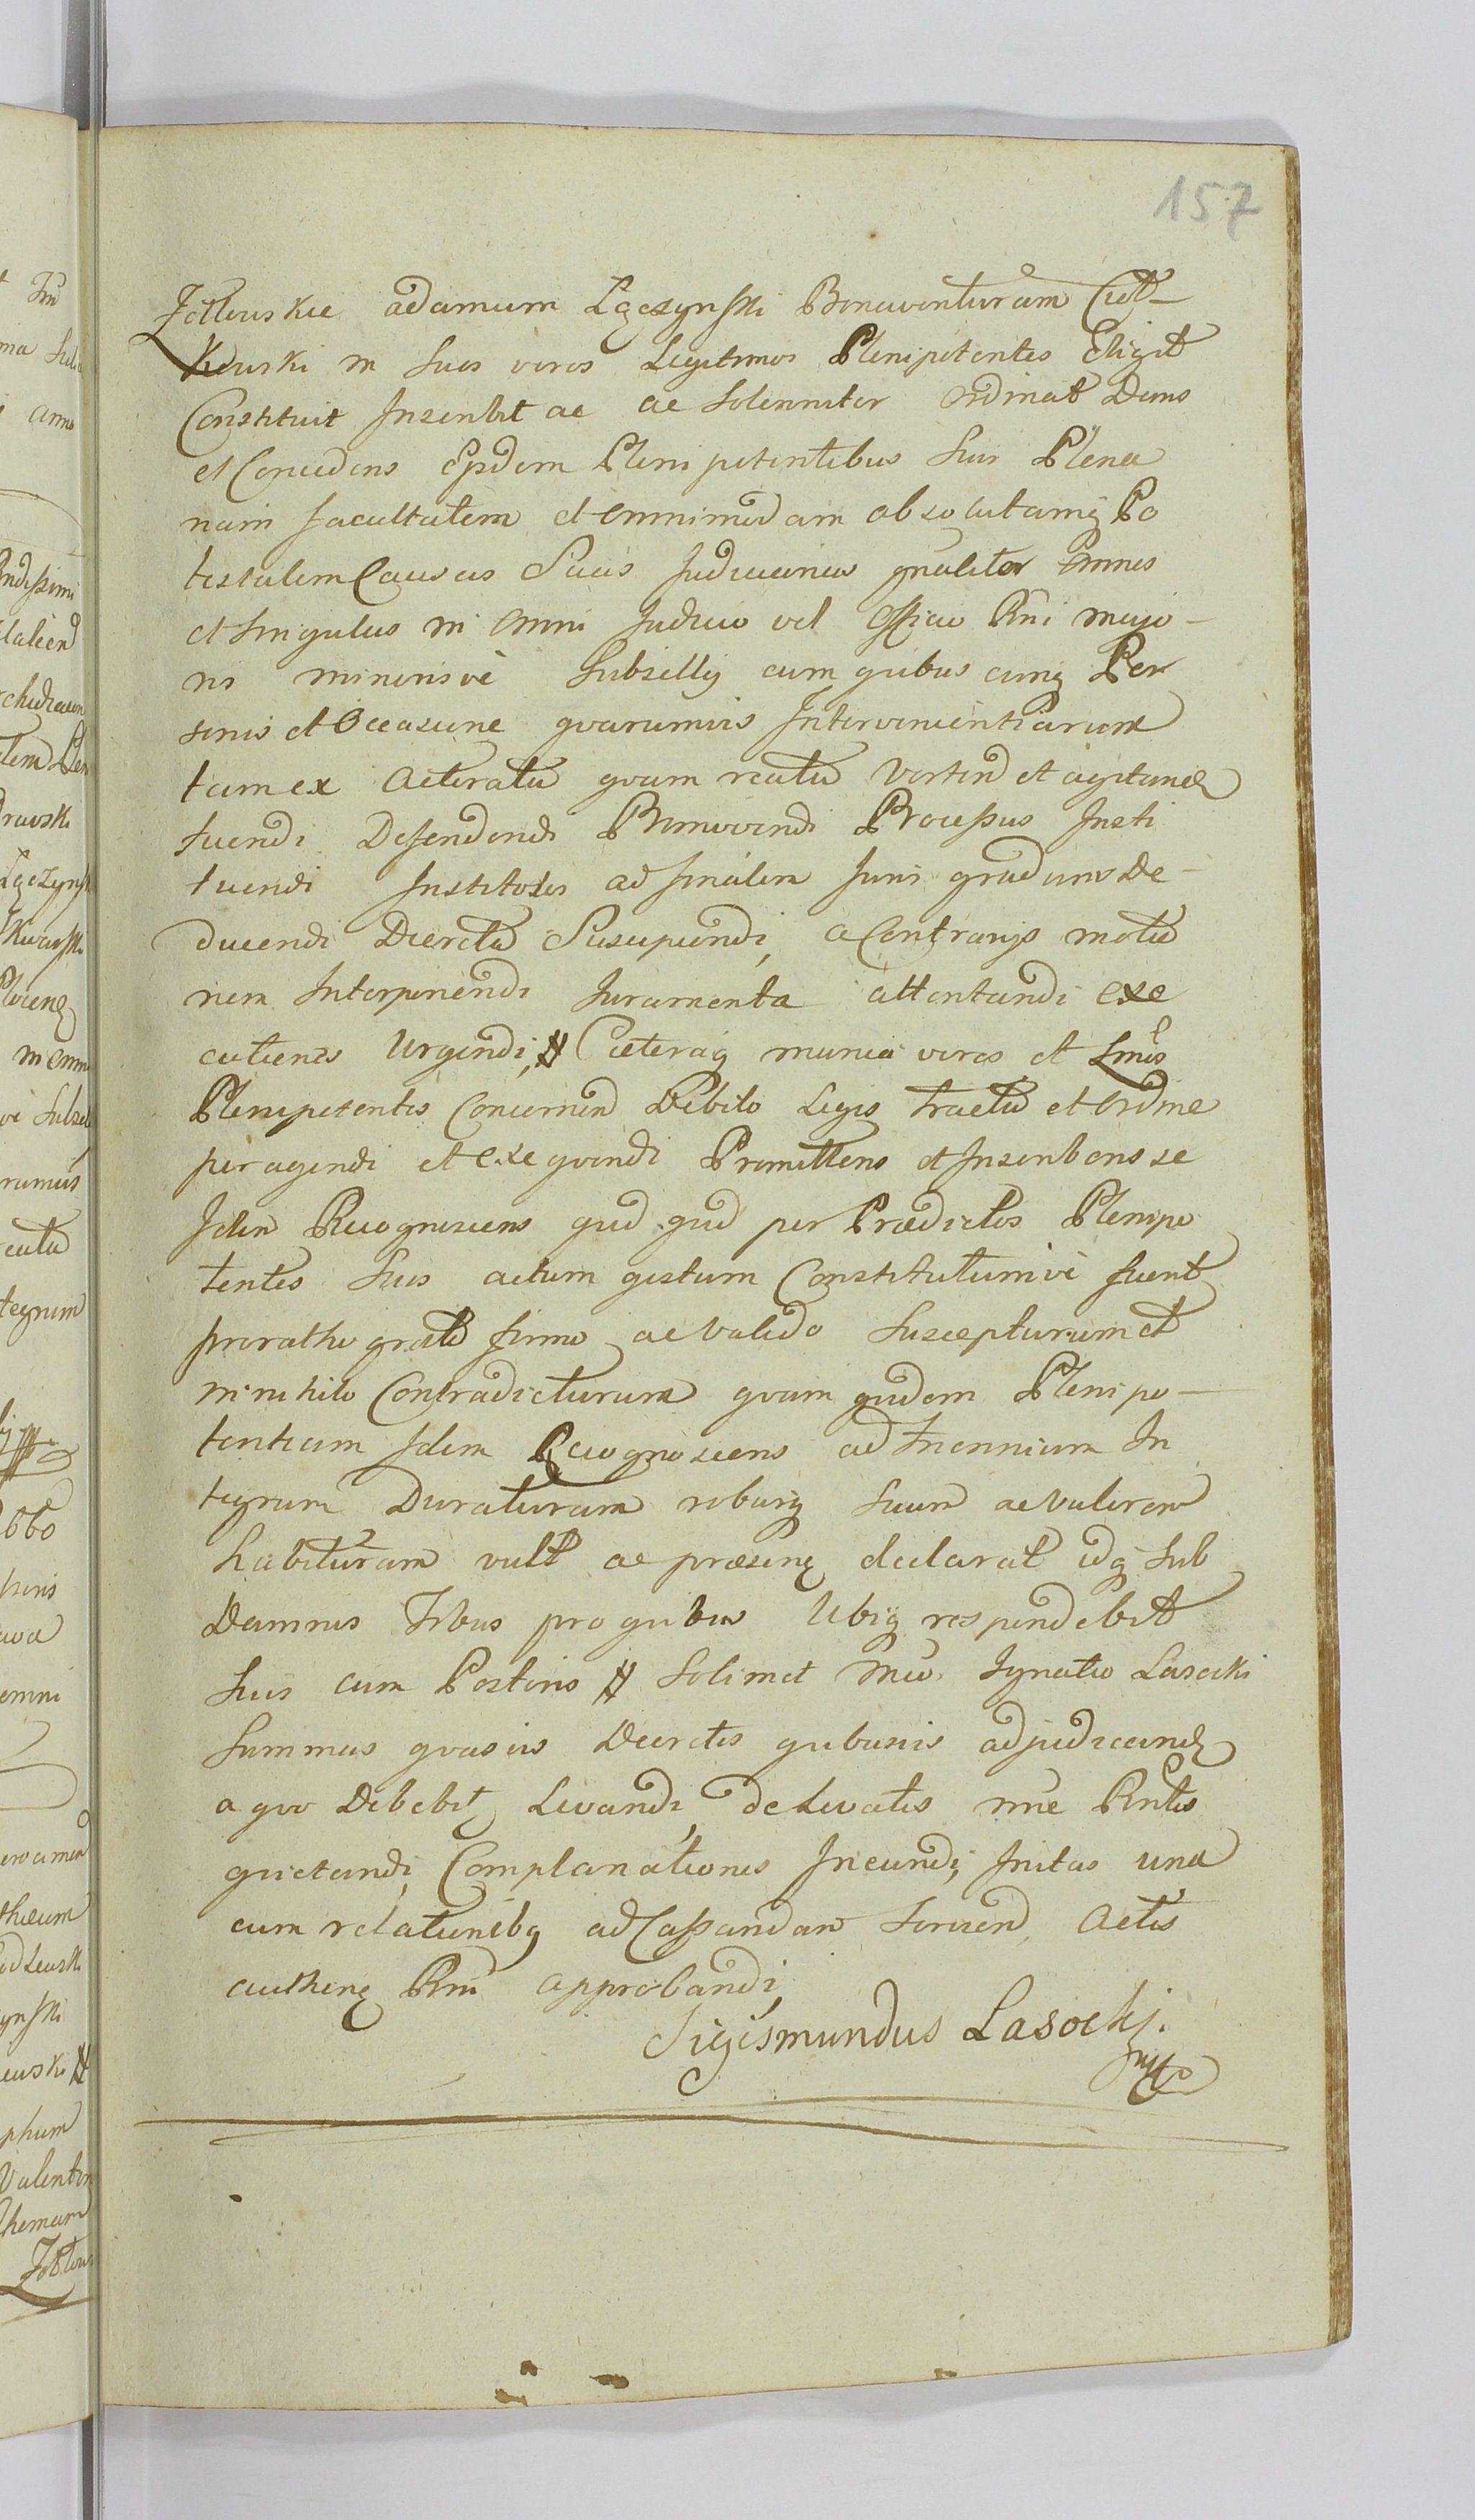 157
Zołtowskie adamum Łączynski Bonaventuram Ciet-
Kowski in Suos veros Legitimos Plenipotentes Eligit
Constituit Inscribit ac ac Solenniter Ordinat Dans
et Concedens Eisdem Plenipotentibus Suis Plena
riam facultatem et omnimodam absolutamq Po
testatem Causas Suas Judiciarias gnaliter Omnes
et Singulas in Omni Judicio vel Officio Rni majo-
ris minorisve Subsellij cum quibus cunq Per
sonis et Occasione quarumvis Intervenientiarum
tam ex Actoratu quam reatu Vorten et agitand
tuendi Defendendi Promovendi Processus Insti
tuendi Institutos ad finalem Juris gradum De-
ducendi Decreta Suscipiendi, a Contrarijs motio
nem Interponendi Juramenta attentandi exe
cutiones Urgendi, # Caeteraq munia veros et Lmos
Plenipotentes Concernen Debito Legis tractu et Ordine
peragendi et exequendi Promittens et Inscribens se
Idem Recognoscens qud qud per Praedictos Plenipo
tentes Suos actum gestum Constitutumve fuerit
pro ratho grato firmo ac valido Suscepturum et
in nihilo Contradicturum quam quidem Plenipo-
tentiam Idem Recognoscens ad triennium In
tegrum Duraturam roburq Suum ac valorem
habituram vult ac praesentq declarat idq Sub
Damnis Trbus pro quibus Ubiq respondebit
Suis cum Posteris # Solimet Mco Ignatio Lasocki
Summas quasvis Decretis quibusvis adjudicand
a quo Debebit Levandi, de Levatis nne Rntis
quietandi, Complanationes Ineundi, Initas una
cum relationibq ad Cassandam Servien Actis
authenq Rni approbandi,
Sigismundus Lasockj.